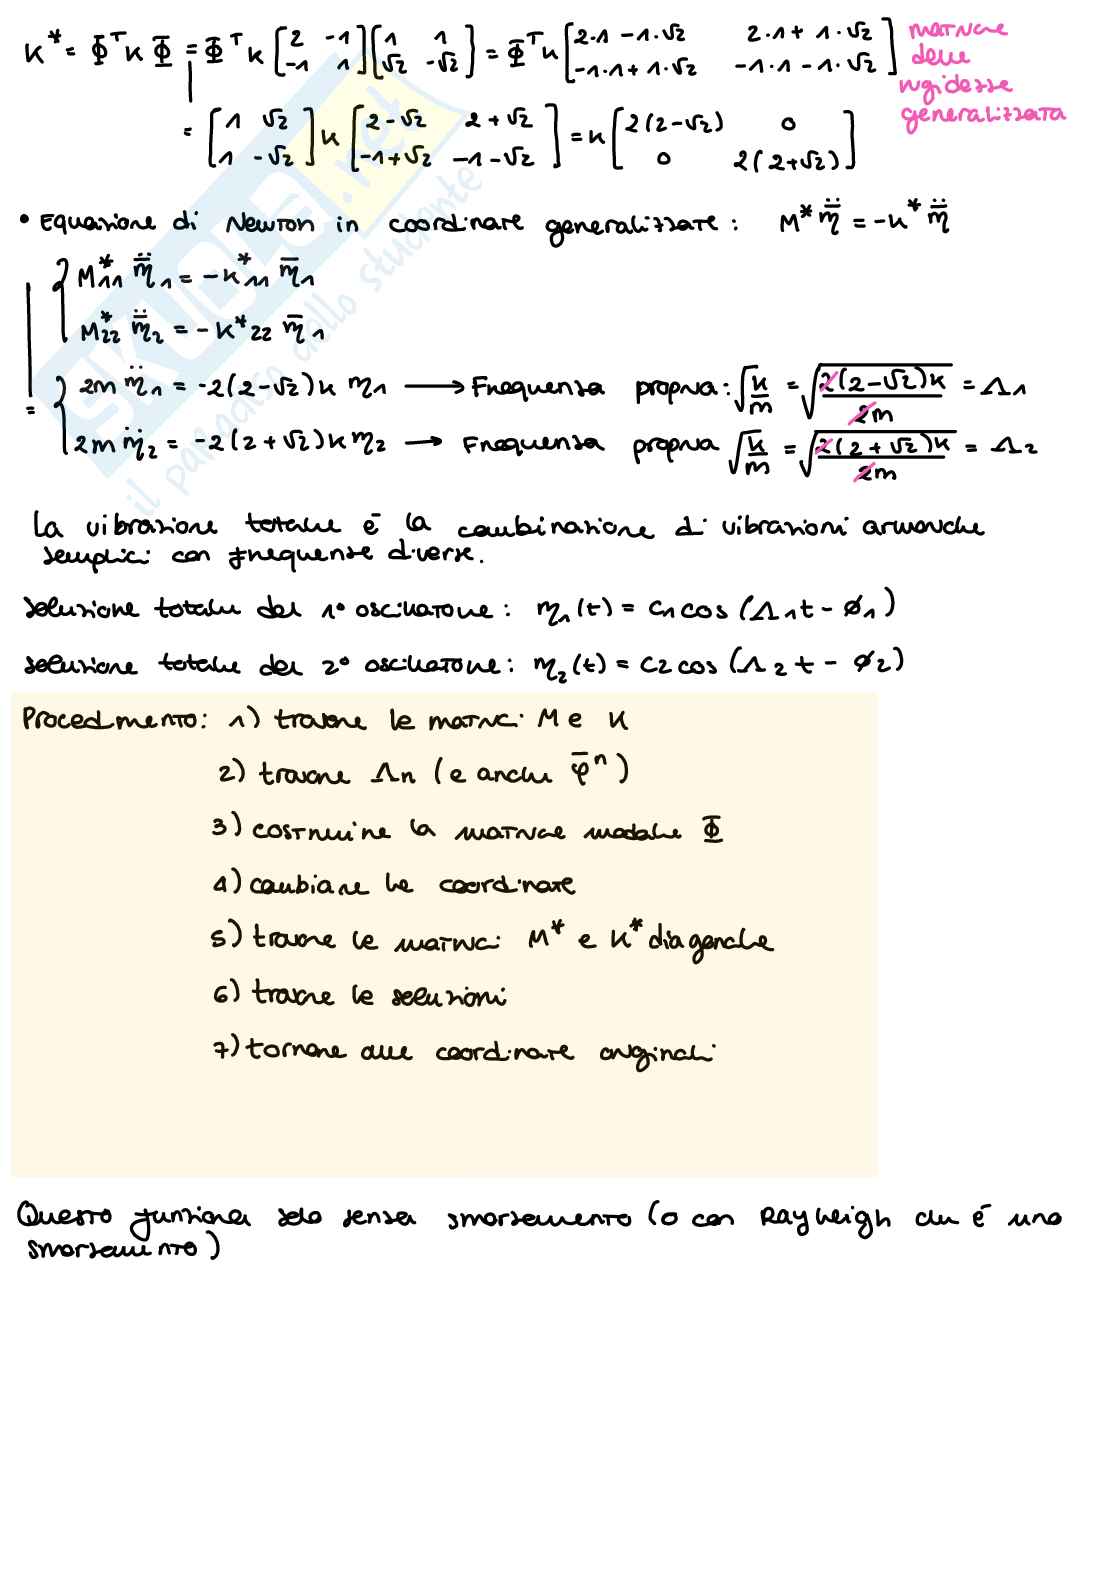 K* = Φ̄ᵀ K Φ̄ = Φ̄ᵀ K [2 -1; -1 1] [1 1; √2 -√2] = Φ̄ᵀ K [2·1 - 1·√2 2·1 + 1·√2; -1·1 + 1·√2 -1·1 - 1·√2] matrice delle rigidezze generalizzata
= [1 √2; 1 -√2] K [2-√2 2+√2; -1+√2 -1-√2] = K [2(2-√2) 0; 0 2(2+√2)]
• Equazione di Newton in coordinate generalizzate: M* η̈ = -K* η̈
M*11 η̈1 = -K*11 η̄1
M*22 η̈2 = -K*22 η̄1
= 2m η̈1 = -2(2-√2)K η1 → Frequenza propria: √(K/m) = √(2(2-√2)K/2m) = Λ1
2m η̈2 = -2(2+√2)K η2 → Frequenza propria √(K/m) = √(2(2+√2)K/2m) = Λ2
La vibrazione totale è la combinazione di vibrazioni armoniche
semplici con frequenze diverse.
soluzione totale del 1° oscillatore: η1(t) = C1 cos(Λ1t - ϕ1)
soluzione totale del 2° oscillatore: η2(t) = C2 cos(Λ2t - ϕ2)
Procedimento: 1) trovare le matrici M e K
2) trovare Λn (e anche φ̄ⁿ)
3) costruire la matrice modale Φ̄
4) cambiare le coordinate
5) trovare le matrici M* e K* diagonale
6) trovare le soluzioni
7) tornare alle coordinate originali
Questo funziona solo senza smorzamento (o con Rayheigh che è uno
smorzamento)
SKUOLA.net
il paradiso dello studente